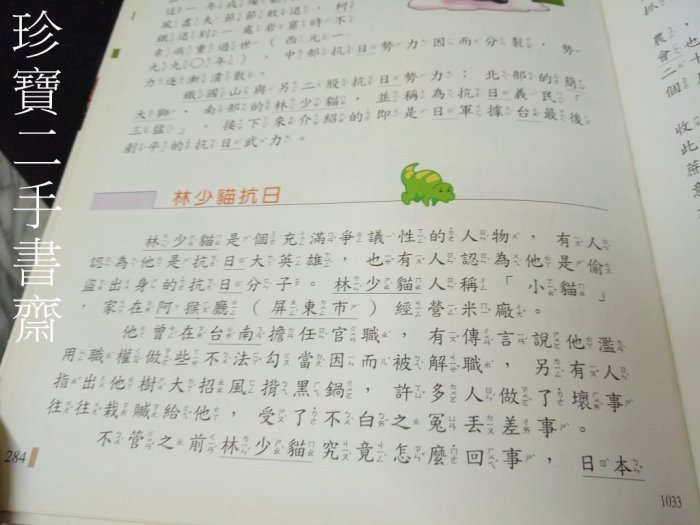 珍寶二手書齋
風盡失節節敗退，柯
鐵退到一處岩窟時不
幸病重過世（西元一
九九〇年），中部抗日勢力因而分裂，勢
力逐漸潰散。
鐵國山與另二股抗日勢力：北部的簡
大獅、南部的林少貓，並稱為抗日義民「
三猛」。接下來介紹的即是日軍據台最後
剷平的抗日武力。
林少貓抗日
林少貓是個充滿爭議性的人物，有人
認為他是抗日大英雄，也有人認為他是偷
盜出身的抗日分子。林少貓人稱「小貓」
，家在阿猴廳（屏東市）經營米廠。
他曾在台南擔任官職，有傳言說他濫
用職權做些不法勾當因而被解職，另有人
指出他樹大招風揹黑鍋，許多人做了壞事
往往栽贓給他，受了不白之冤丟差事。
不管之前林少貓究竟怎麼回事，日本
284
農
會
二
個
收
此
蔗
意
1033